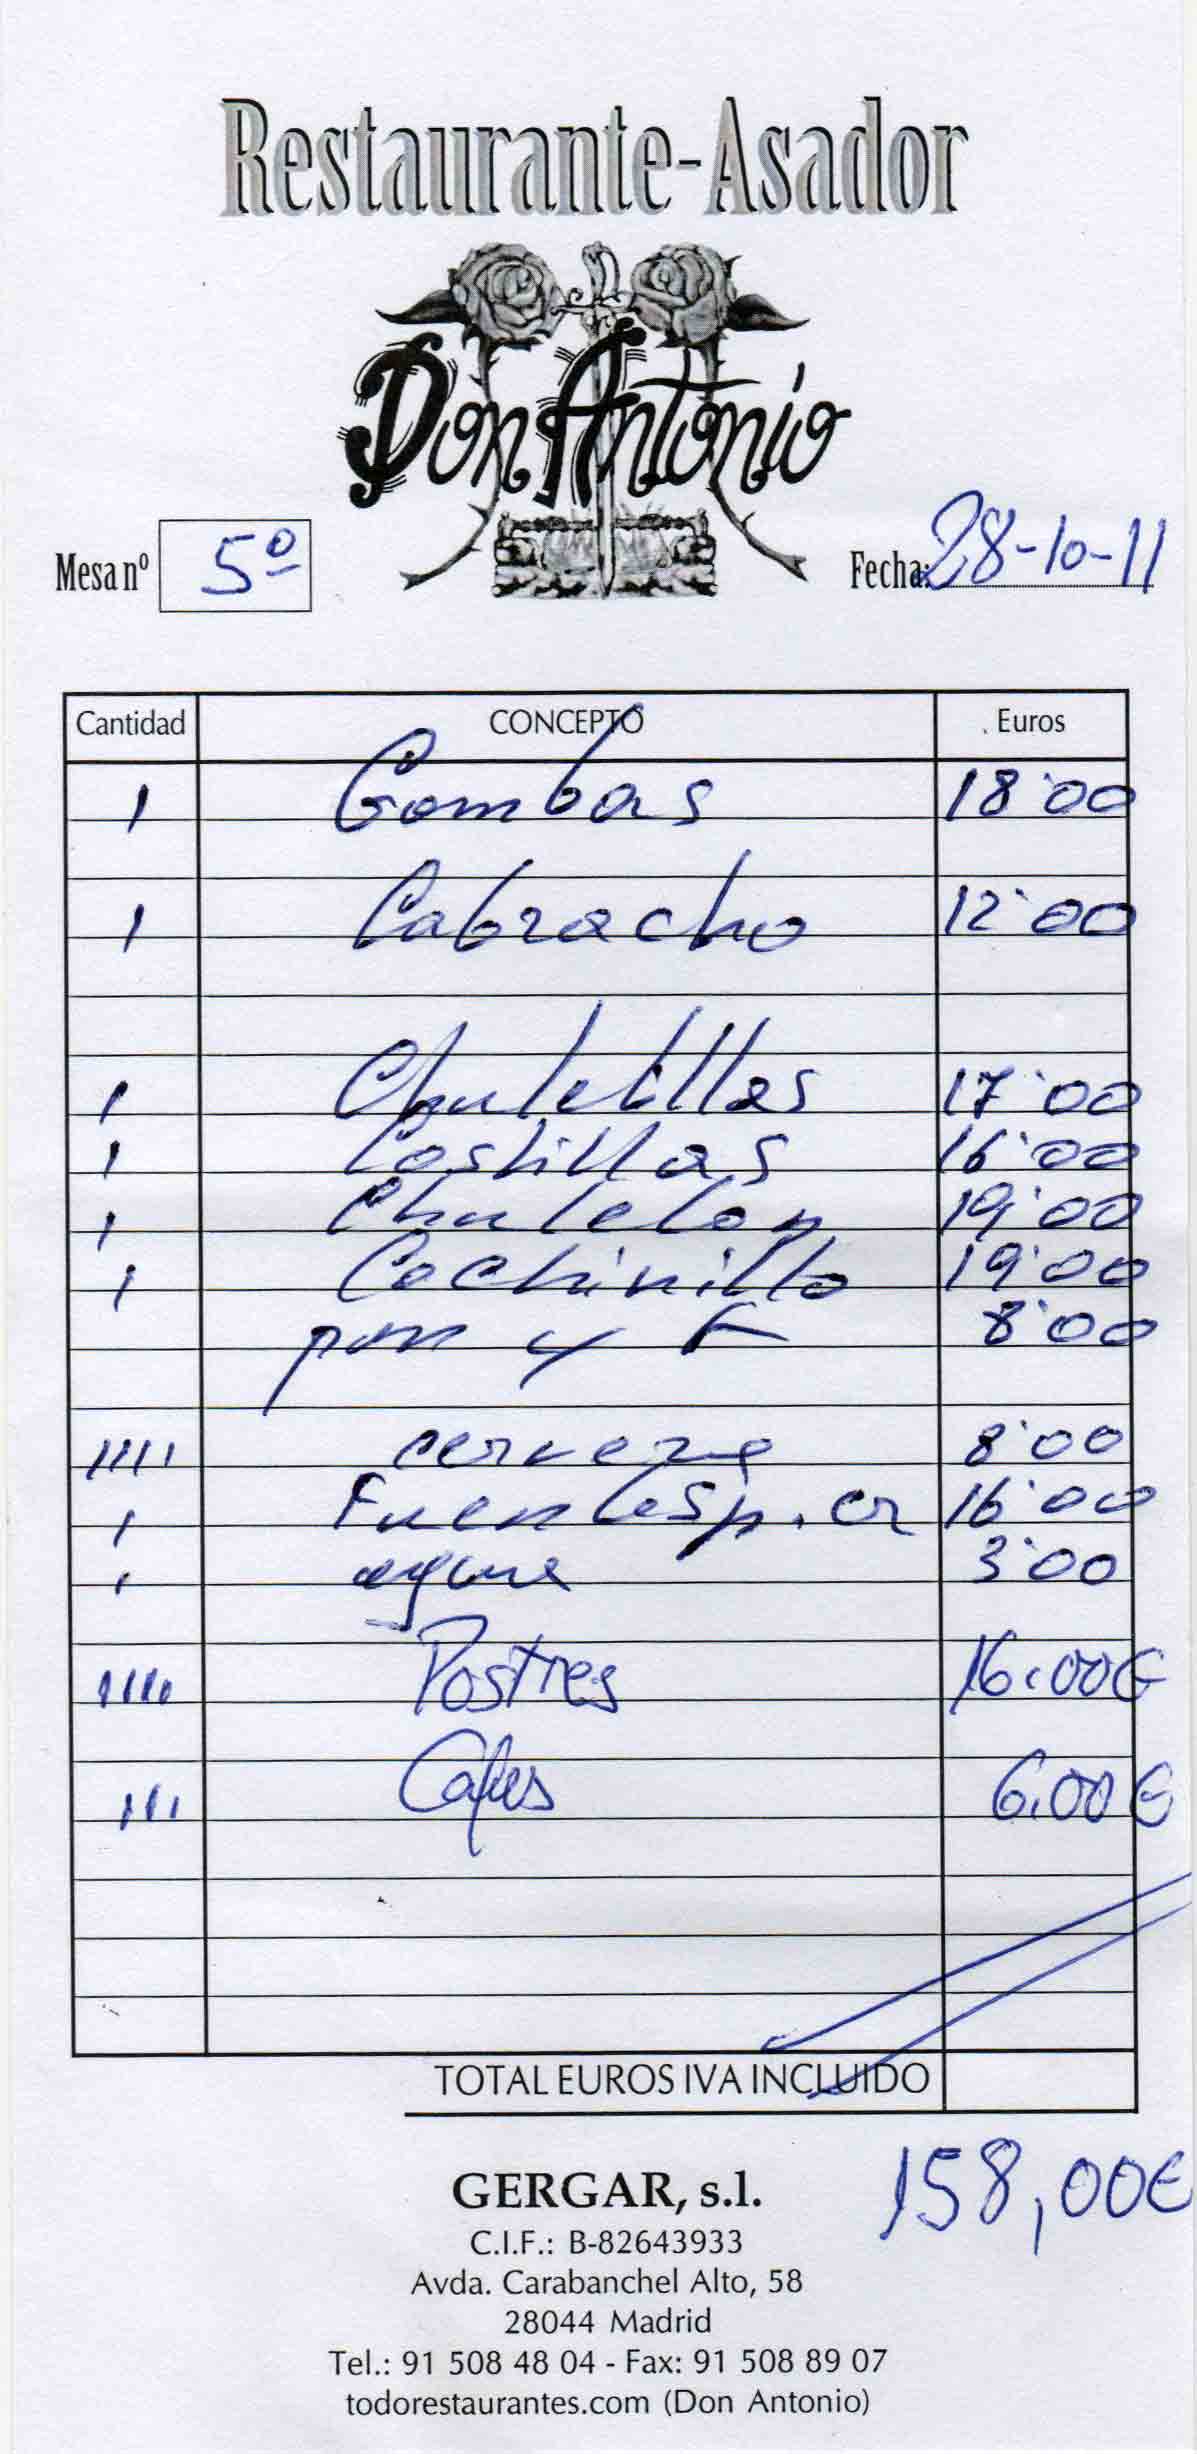 Restaurante-Asador
Don Antonio
Mesa nº 5º Fecha: 28-10-11
Cantidad CONCEPTO Euros
1 Gambas 18'00
1 Cabracho 12'00
1 Chuletillas 17'00
1 Costillas 16'00
1 Chuleton 19'00
1 Cochinillo 19'00
pan y 8'00
IIII cerveza 8'00
1 Fuentesp. cr 16'00
1 agua 3'00
IIII Postres 16.00€
III Cafes 6.00€
TOTAL EUROS IVA INCLUIDO
158,00€
GERGAR, s.l.
C.I.F.: B-82643933
Avda. Carabanchel Alto, 58
28044 Madrid
Tel.: 91 508 48 04 - Fax: 91 508 89 07
todorestaurantes.com (Don Antonio)